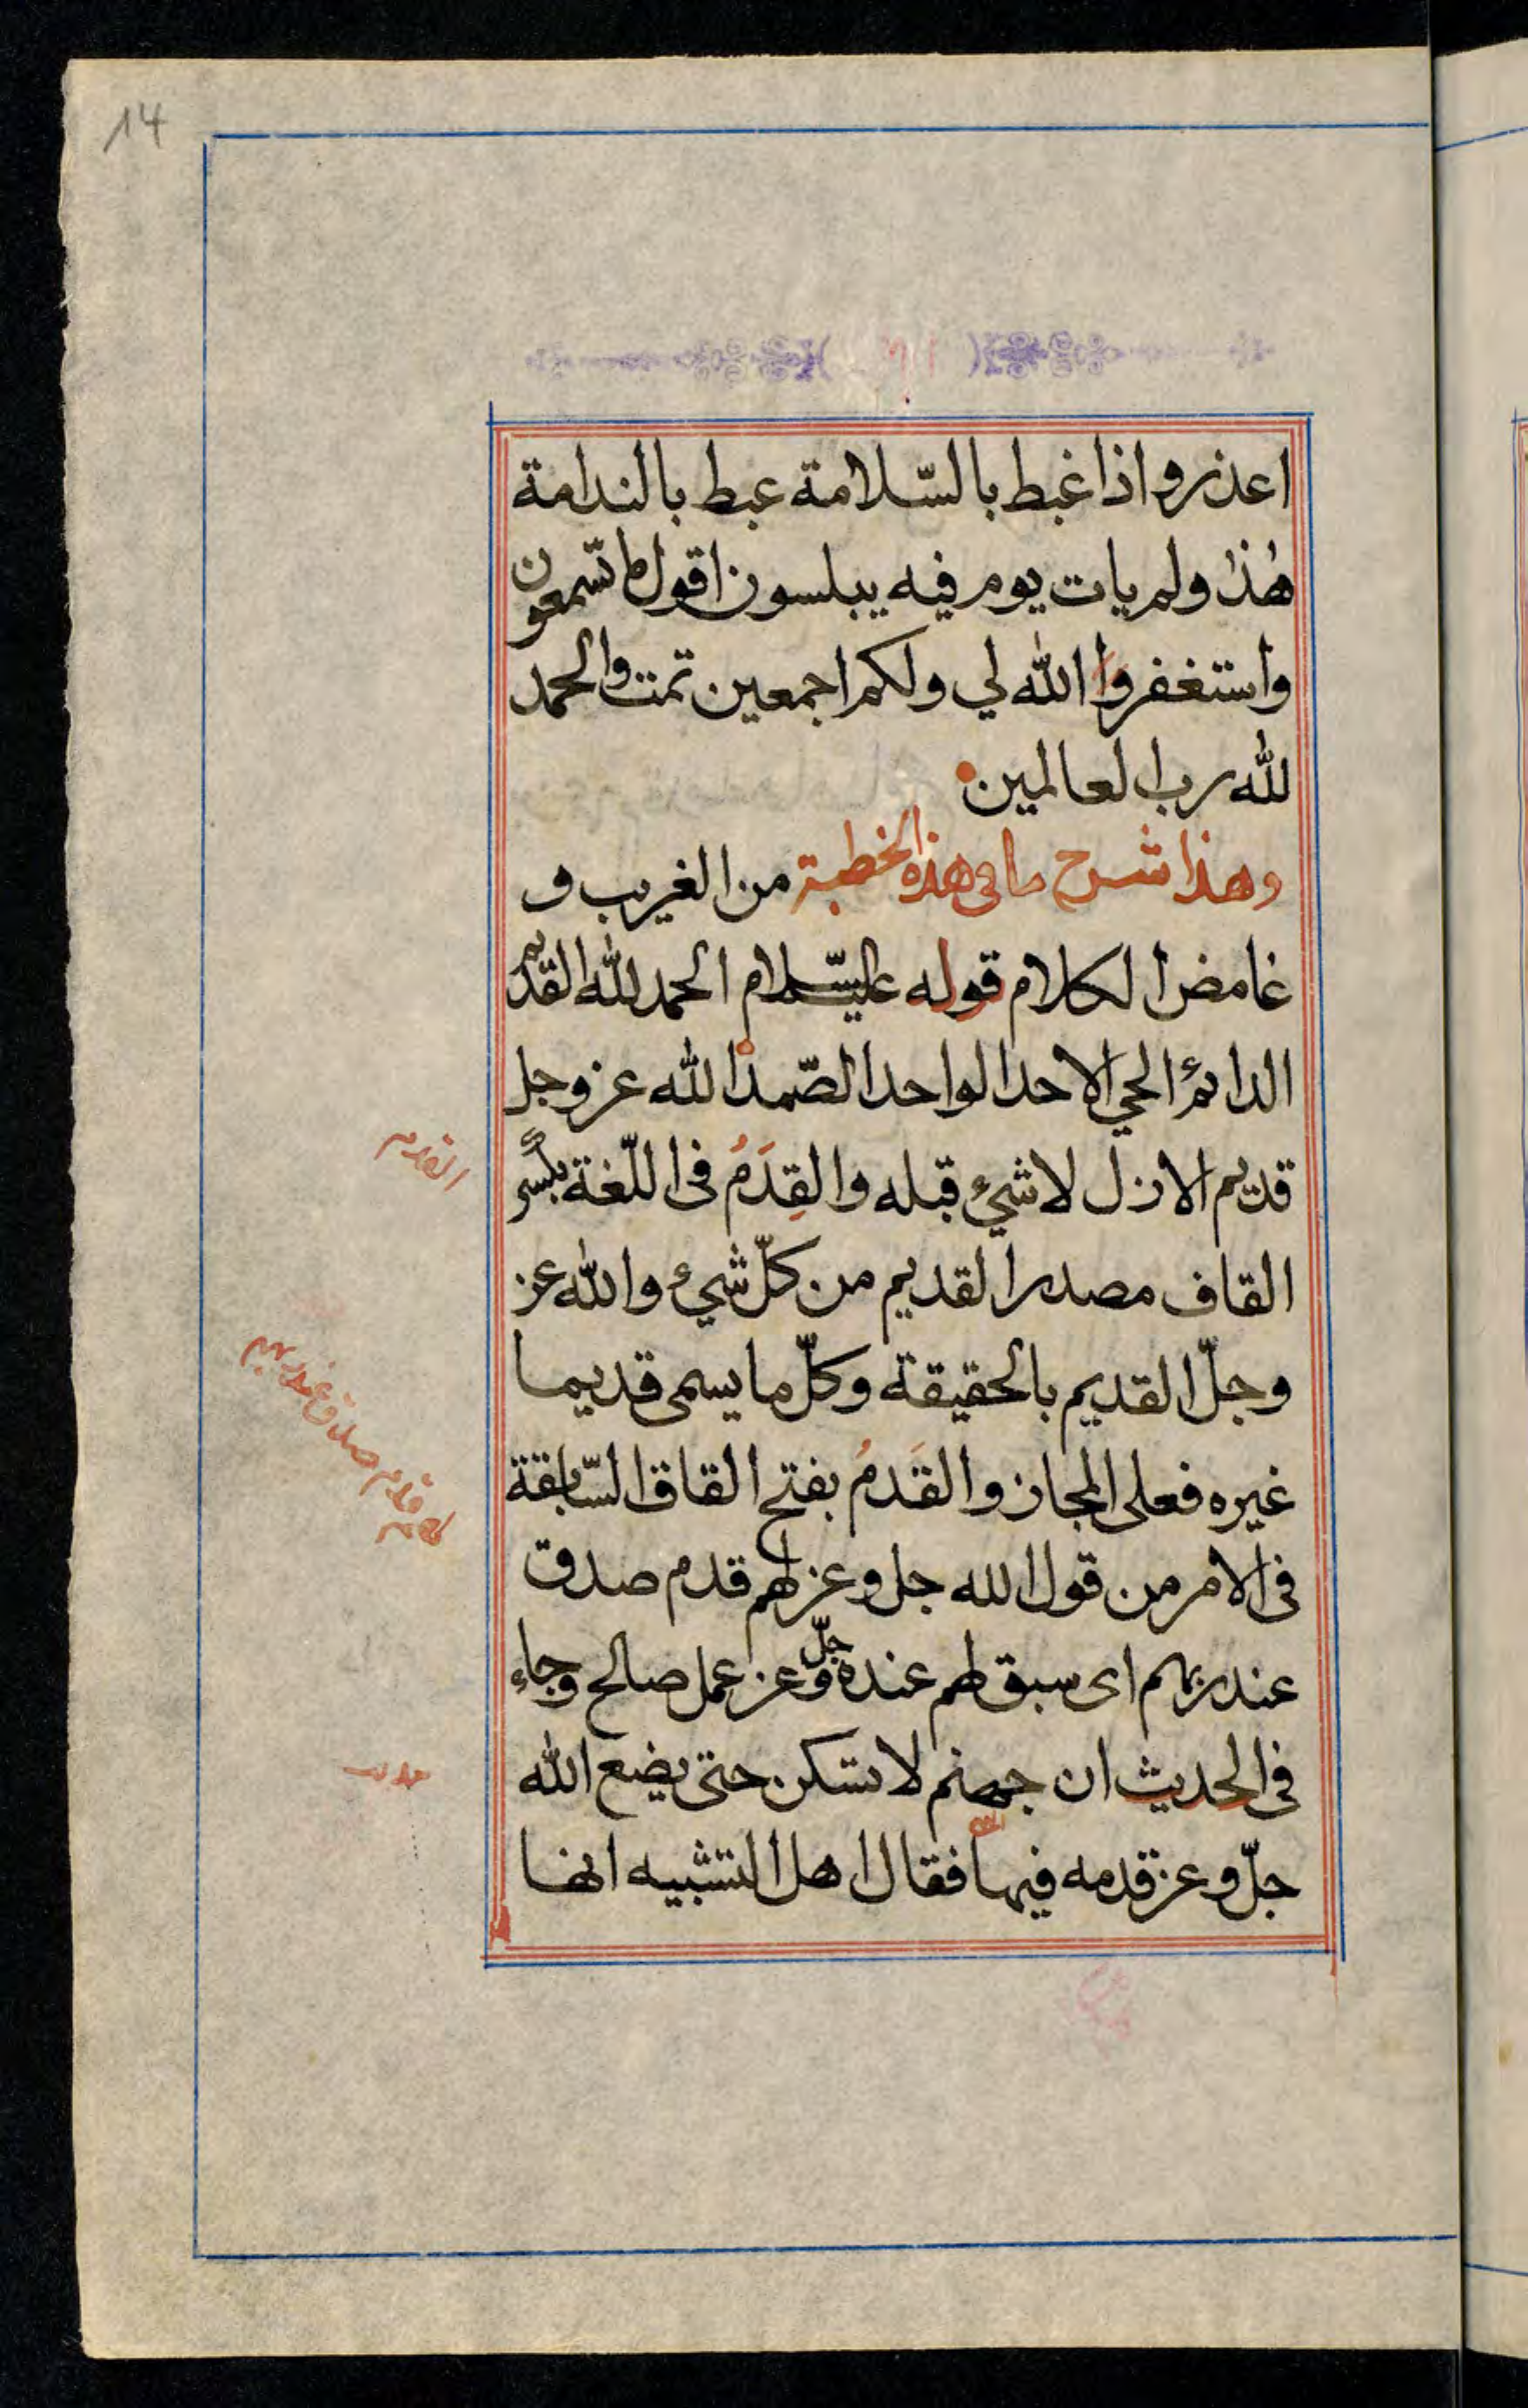 14
اعذر واذا غبط بالسّلامة عبط بالندامة
هٰذا ولم يات يوم فيه يبلسون اقول ما تسمعون
واستغفروا الله لي ولكم اجمعين تمت والحمد
لله رب العالمين
وهذا شرح ما في هذه الخطبة من الغريب و
غامض الكلام قوله عليه السّلام الحمد لله القديم
الدائم الحي الاحد الواحد الصّمد الله عز وجل
قديم الازل لا شيء قبله والقِدَمُ فى اللّغة بكسر
القاف مصدر القديم من كلّ شيء والله عز
وجلّ القديم بالحقيقة وكلّ ما يسمى قديما
غيره فعلى المجاز والقَدمُ بفتح القاف السّابقة
فى الامر من قول الله جل وعز لهم قدم صدق
عند ربهم اى سبق لهم عنده جلّ وعز عمل صالح وجاء
فى الحديث ان جهنم لا تسكن حتى يضع الله
جلّ وعز قدمه فيها فقال اهل التشبيه انها
القدم
لهم قدم صدق عند ربهم
حديث